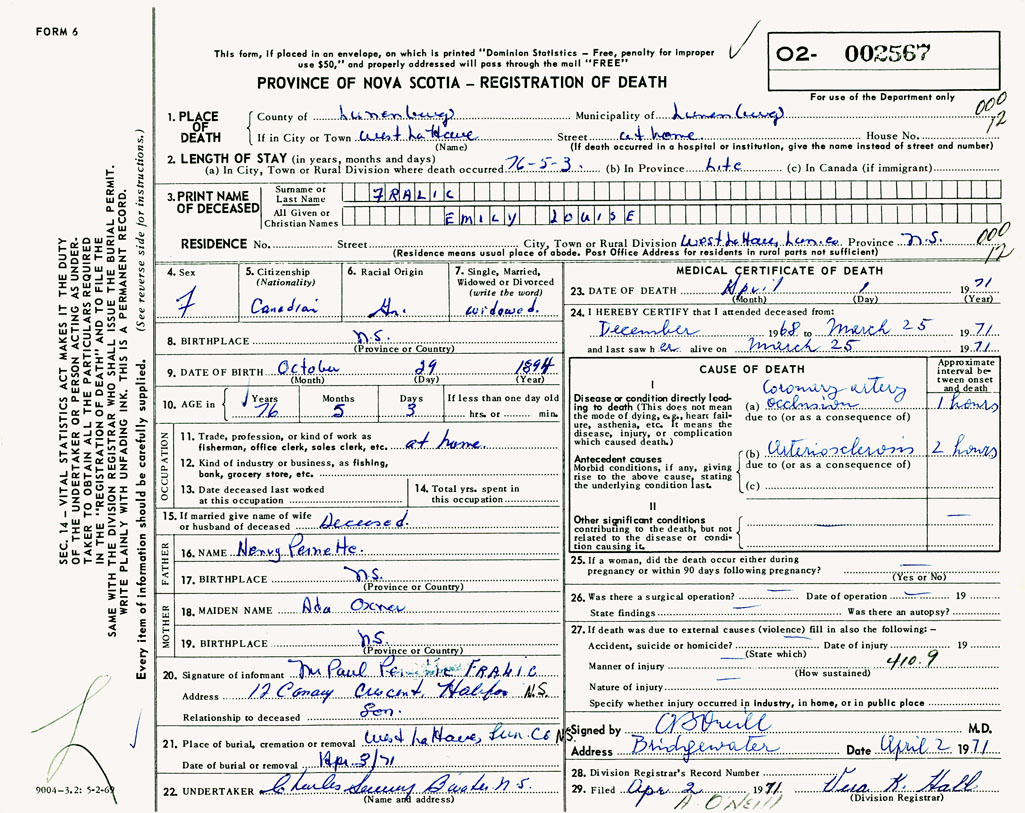 FORM 6
This form, if placed in an envelope, on which is printed "Dominion Statistics – Free, penalty for improper
use $50," and properly addressed will pass through the mail "FREE"
PROVINCE OF NOVA SCOTIA – REGISTRATION OF DEATH
O2- 002567
For use of the Department only
000
12
1. PLACE OF DEATH
County of Lunenburg Municipality of Lunenburg
If in City or Town West LaHave Street at home House No.
(Name) (If death occurred in a hospital or institution, give the name instead of street and number)
2. LENGTH OF STAY (in years, months and days)
(a) In City, Town or Rural Division where death occurred 76-5-3 (b) In Province Life (c) In Canada (if immigrant)
3. PRINT NAME OF DECEASED
Surname or Last Name FRALIC
All Given or Christian Names EMILY LOUISE
RESIDENCE No. Street City, Town or Rural Division West LaHave, Lun. co. Province N.S.
(Residence means usual place of abode. Post Office Address for residents in rural parts not sufficient)
000
12
4. Sex F
5. Citizenship (Nationality) Canadian
6. Racial Origin
7. Single, Married, Widowed or Divorced (write the word) widowed.
8. BIRTHPLACE N.S.
(Province or Country)
9. DATE OF BIRTH October 29 1894
(Month) (Day) (Year)
10. AGE in Years 76 Months 5 Days 3 If less than one day old hrs. or min.
OCCUPATION
11. Trade, profession, or kind of work as
fisherman, office clerk, sales clerk, etc. at home.
12. Kind of industry or business, as fishing,
bank, grocery store, etc.
13. Date deceased last worked
at this occupation
14. Total yrs. spent in
this occupation
15. If married give name of wife
or husband of deceased Deceased.
FATHER
16. NAME Henry Pernette.
17. BIRTHPLACE N.S.
(Province or Country)
MOTHER
18. MAIDEN NAME Ada Oxner
19. BIRTHPLACE N.S.
(Province or Country)
20. Signature of informant Mr Paul FRALIC
Address 12 Conay Crescent Halifax N.S.
Relationship to deceased Son.
21. Place of burial, cremation or removal West LaHave, Lun. Co NS.
Date of burial or removal Apr. 3/71
22. UNDERTAKER Charles N.S.
(Name and address)
MEDICAL CERTIFICATE OF DEATH
23. DATE OF DEATH April 1 1971
(Month) (Day) (Year)
24. I HEREBY CERTIFY that I attended deceased from:
December 1968 to March 25 1971
and last saw her alive on March 25 1971
CAUSE OF DEATH
Approximate interval between onset and death
I
Disease or condition directly leading to death (This does not mean the mode of dying, e.g., heart failure, asthenia, etc. It means the disease, injury, or complication which caused death.)
(a) Coronary artery occlusion 1 hours
due to (or as a consequence of)
Antecedent causes
Morbid conditions, if any, giving rise to the above cause, stating the underlying condition last.
(b) Arteriosclerosis 2 hours
due to (or as a consequence of)
(c)
II
Other significant conditions
contributing to the death, but not related to the disease or condition causing it.
25. If a woman, did the death occur either during
pregnancy or within 90 days following pregnancy?
(Yes or No)
26. Was there a surgical operation? Date of operation 19
State findings Was there an autopsy?
27. If death was due to external causes (violence) fill in also the following: –
Accident, suicide or homicide? Date of injury 19
(State which)
410.9
Manner of injury
(How sustained)
Nature of injury
Specify whether injury occurred in industry, in home, or in public place
Signed by M.D.
Address Bridgewater Date April 2 1971
28. Division Registrar's Record Number
29. Filed Apr 2 1971 Vera K. Hall
(Division Registrar)
A. O'NEILL
SEC. 14 – VITAL STATISTICS ACT MAKES IT THE DUTY
OF THE UNDERTAKER OR PERSON ACTING AS UNDER-
TAKER TO OBTAIN ALL THE PARTICULARS REQUIRED
IN THE "REGISTRATION OF DEATH" AND TO FILE THE
SAME WITH THE DIVISION REGISTRAR WHO SHALL ISSUE THE BURIAL PERMIT.
WRITE PLAINLY WITH UNFADING INK. THIS IS A PERMANENT RECORD.
Every item of information should be carefully supplied. (See reverse side for instructions.)
9004-3.2: 5-2-69